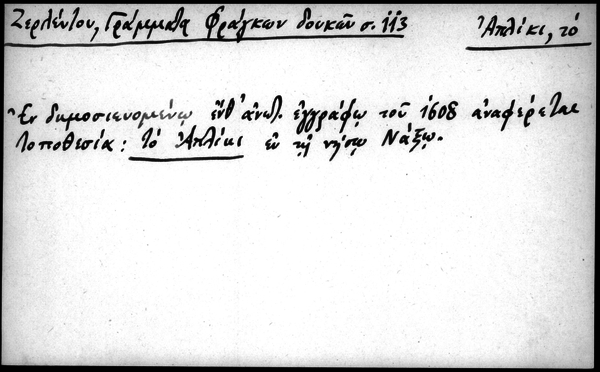 Ζερλέντου, Γράμματα Φράγκων δουκῶν σ. 113
Ἀπλίκι, τό
Ἐν δημοσιευομένῳ ἔνθ' ἀνωτ. ἐγγράφῳ τοῦ 1608 ἀναφέρεται
τοποθεσία: τὸ Ἀπλίκι ἐν τῇ νήσῳ Νάξῳ.